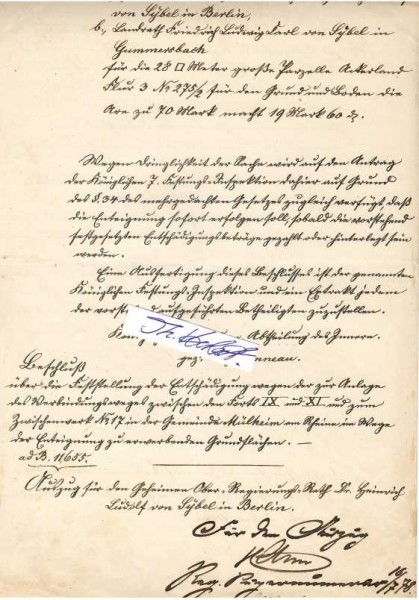 von Sybel in Berlin,
b., Landrath Friedrich Ludwig Carl von Sybel in
Gummersbach
für die 28 □Meter große Parzelle Ackerland
Flur 3 No 275/2 für den Grund und Boden die
Are zu 70 Mark macht 19 Mark 60 ₰.
Wegen Dringlichkeit der Sache wird auf den Antrag
der Königlichen 7. Festungs-Inspektion dahier auf Grund
des §. 34 des mehrgedachten Gesetzes zugleich verfügt, daß
die Enteignung sofort erfolgen soll, sobald die vorstehend
festgesetzten Entschädigungsbeträge gezahlt oder hinterlegt sein
werden.
Eine Ausfertigung dieses Beschlusses ist der genannten
Königlichen Festungs-Inspektion und ein Extrakt jedem
der vorstehend aufgeführten Betheiligten zuzustellen.
Abtheilung des Innern.
gez.
Beschluß
über die Feststellung der Entschädigung wegen der zur Anlage
des Verbindungsweges zwischen den Forts IX und XI und zum
Zwischenwerk No 17 in der Gemeinde Mülheim am Rheine im Wege
der Enteignung zu erwerbenden Grundflächen. —
ad B. 11655.
Auszug für den Geheimen Ober-Regierungs-Rath Dr. Heinrich
Ludolf von Sybel in Berlin.
Für den Auszug
Reg. Supernumerar 16/7 78